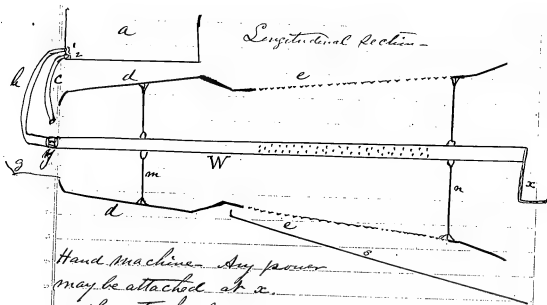 a
Longitudinal Section -
2
h
c
d
e
y
W
g
m
n
x
d
e
s
Hand machine - Any power
may be attached at x.